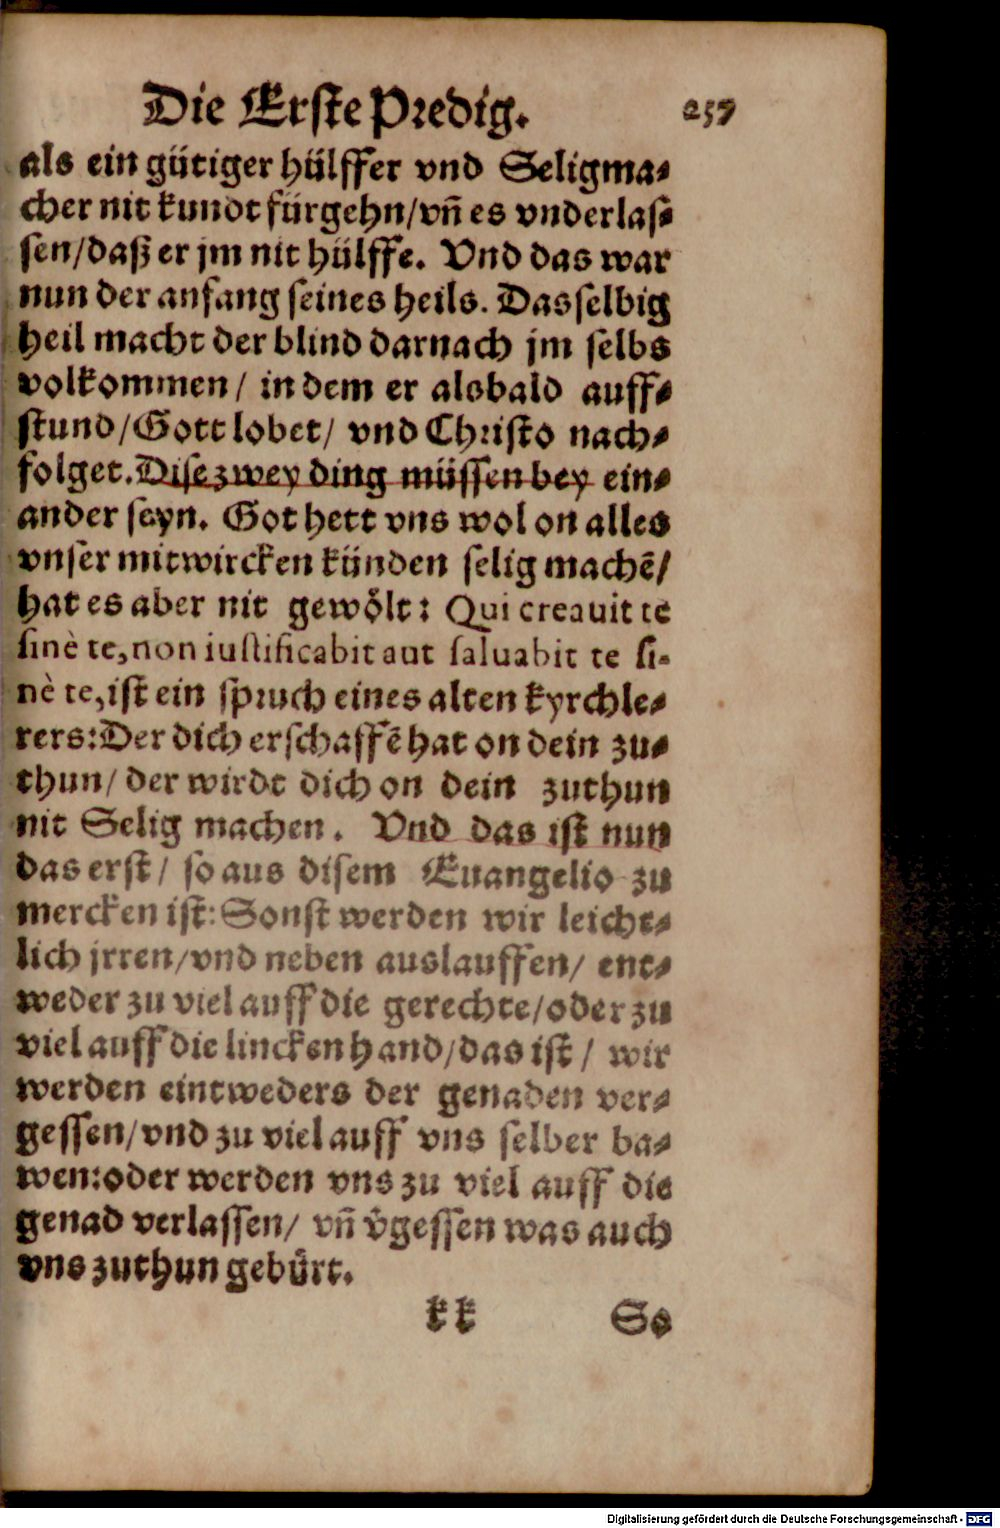 Die Erste Predig. 257
als ein gütiger hülffer vnd Seligma-
cher nit kundt fürgehn/vñ es vnderlas-
sen/daß er jm nit hülffe. Vnd das war
nun der anfang seines heils. Dasselbig
heil macht der blind darnach jm selbs
volkommen/ in dem er alsbald auff-
stund/Gott lobet/ vnd Christo nach-
folget. Dise zwey ding müssen bey ein-
ander seyn. Got hett vns wol on alles
vnser mitwircken künden selig machē/
hat es aber nit gewölt: Qui creauit te
sinè te, non iustificabit aut saluabit te si-
nè te, ist ein spruch eines alten kyrchle-
rers: Der dich erschaffē hat on dein zu-
thun/ der wirdt dich on dein zuthun
nit Selig machen. Vnd das ist nun
das erst/ so aus disem Euangelio zu
mercken ist: Sonst werden wir leicht-
lich jrren/vnd neben auslauffen/ ent-
weder zu viel auff die gerechte/oder zu
viel auff die lincken hand/das ist/ wir
werden eintweders der genaden ver-
gessen/vnd zu viel auff vns selber ba-
wen: oder werden vns zu viel auff die
genad verlassen/ vñ v̄gessen was auch
vns zuthun gebürt.
kk So
Digitalisierung gefördert durch die Deutsche Forschungsgemeinschaft - DFG